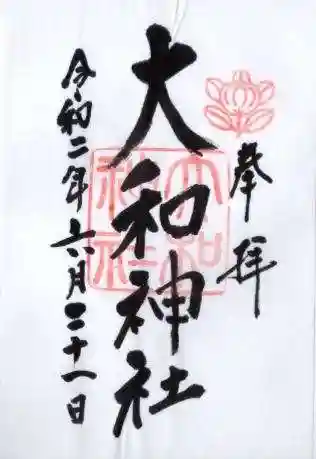 奉拝
大和神社
大和
神社
令和二年六月二十一日